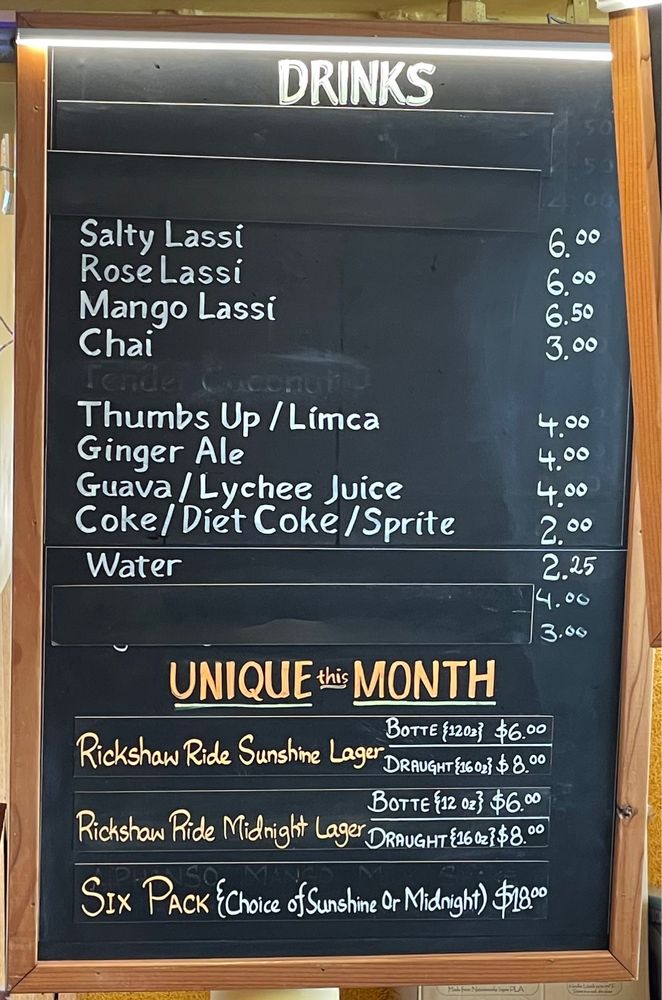 DRINKS
Salty Lassi 6.00
Rose Lassi 6.00
Mango Lassi 6.50
Chai 3.00
Tender Coconut
Thumbs Up / Limca 4.00
Ginger Ale 4.00
Guava / Lychee Juice 4.00
Coke / Diet Coke / Sprite 2.00
Water 2.25
4.00
3.00
UNIQUE this MONTH
Rickshaw Ride Sunshine Lager BOTTE {12oz} $6.00
DRAUGHT {16oz} $8.00
Rickshaw Ride Midnight Lager BOTTE {12 oz} $6.00
DRAUGHT {16oz} $8.00
SIX PACK {(Choice of Sunshine Or Midnight) $18.00